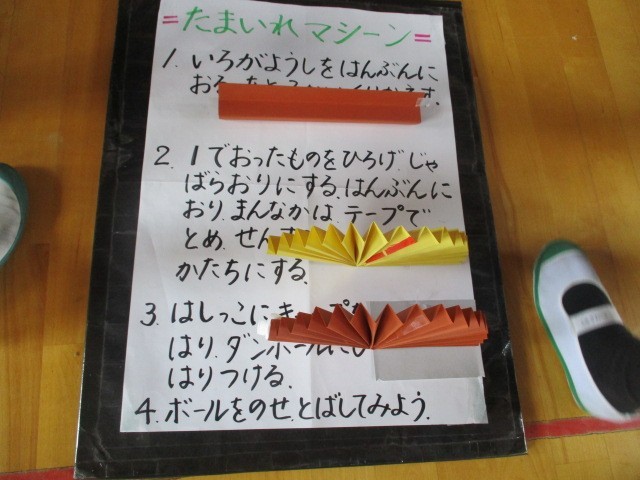 =たまいれマシーン=
1. いろがようしをはんぶんに
おる
2. 1でおったものをひろげ.じゃ
ばらおりにする.はんぶんに
おり.まんなかは.テープで
とめ.せん
かたちにする.
3. はしっこに
はり.ダンボールに
はりつける.
4. ボールをのせ.とばしてみよう.